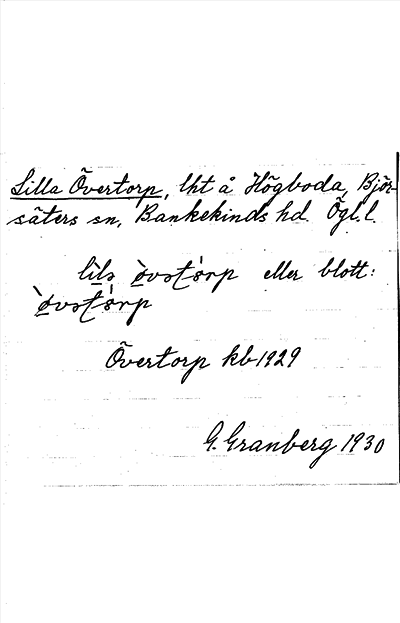 Lilla Övertorp, lht å Högboda, Björ-
säters sn, Bankekinds hd. Ögl. l.
eller blott:
Övertorp kb 1929
G. Granberg 1930